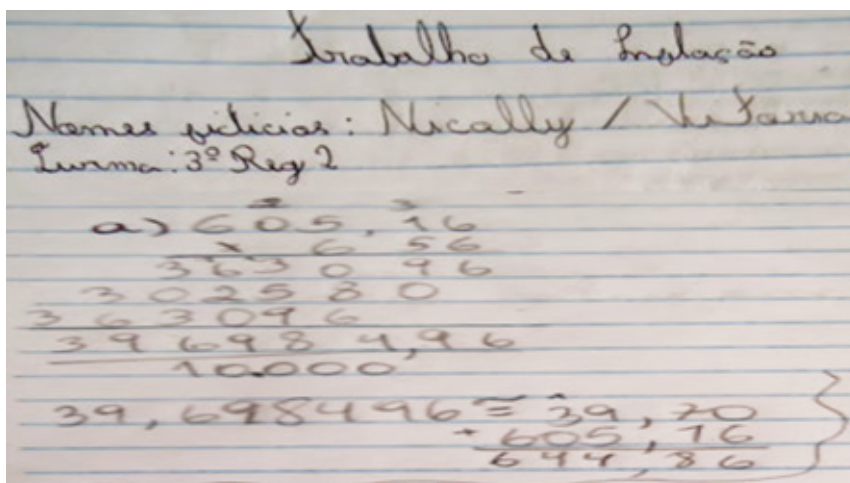 Trabalho de Inflação
Nomes fictícios: Nically / Vitaria
Turma: 3º Reg 2
a) 605,16
x 6 56
3 6 3 0 9 6
3 0 2 5 8 0
3 6 3 0 9 6
3 9 6 9 8 4,9 6
10.000
39,698496 ≅ 39,70
+ 605,16
644,86